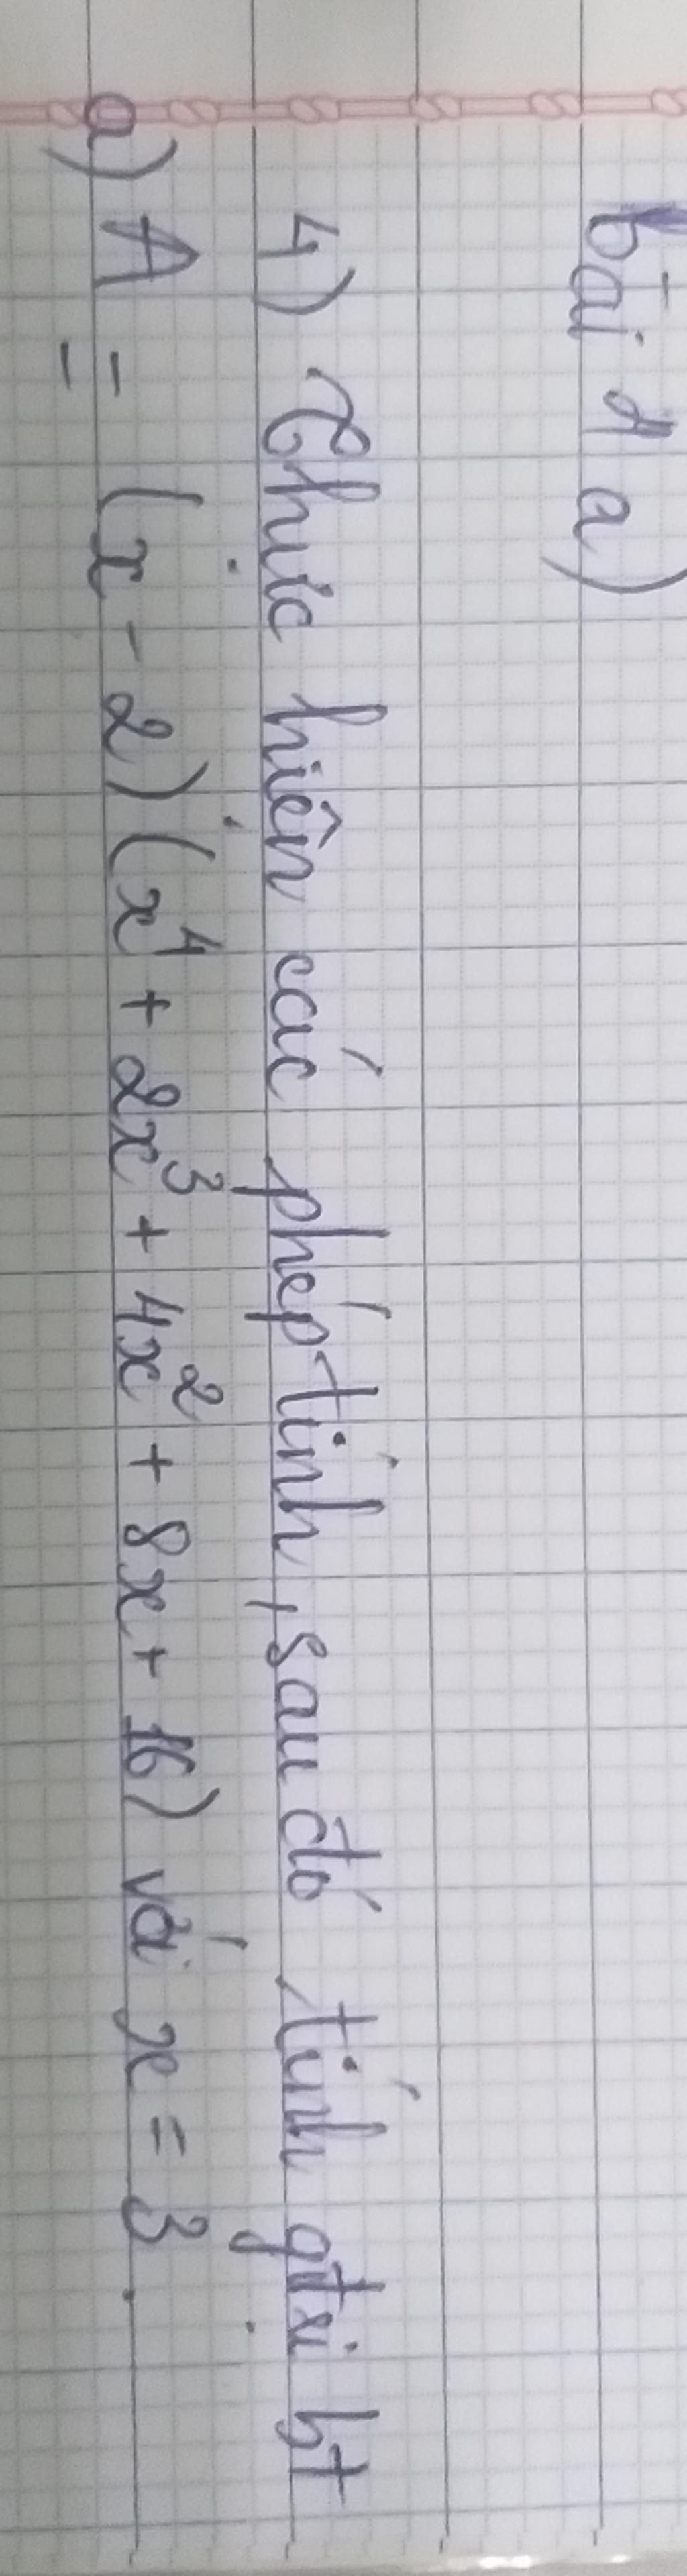 Bài 1 a)
4) Thực hiện các phép tính, sau đó tính gtrị bt
a) A = (x - 2)(x⁴ + 2x³ + 4x² + 8x + 16) với x = 3.
=